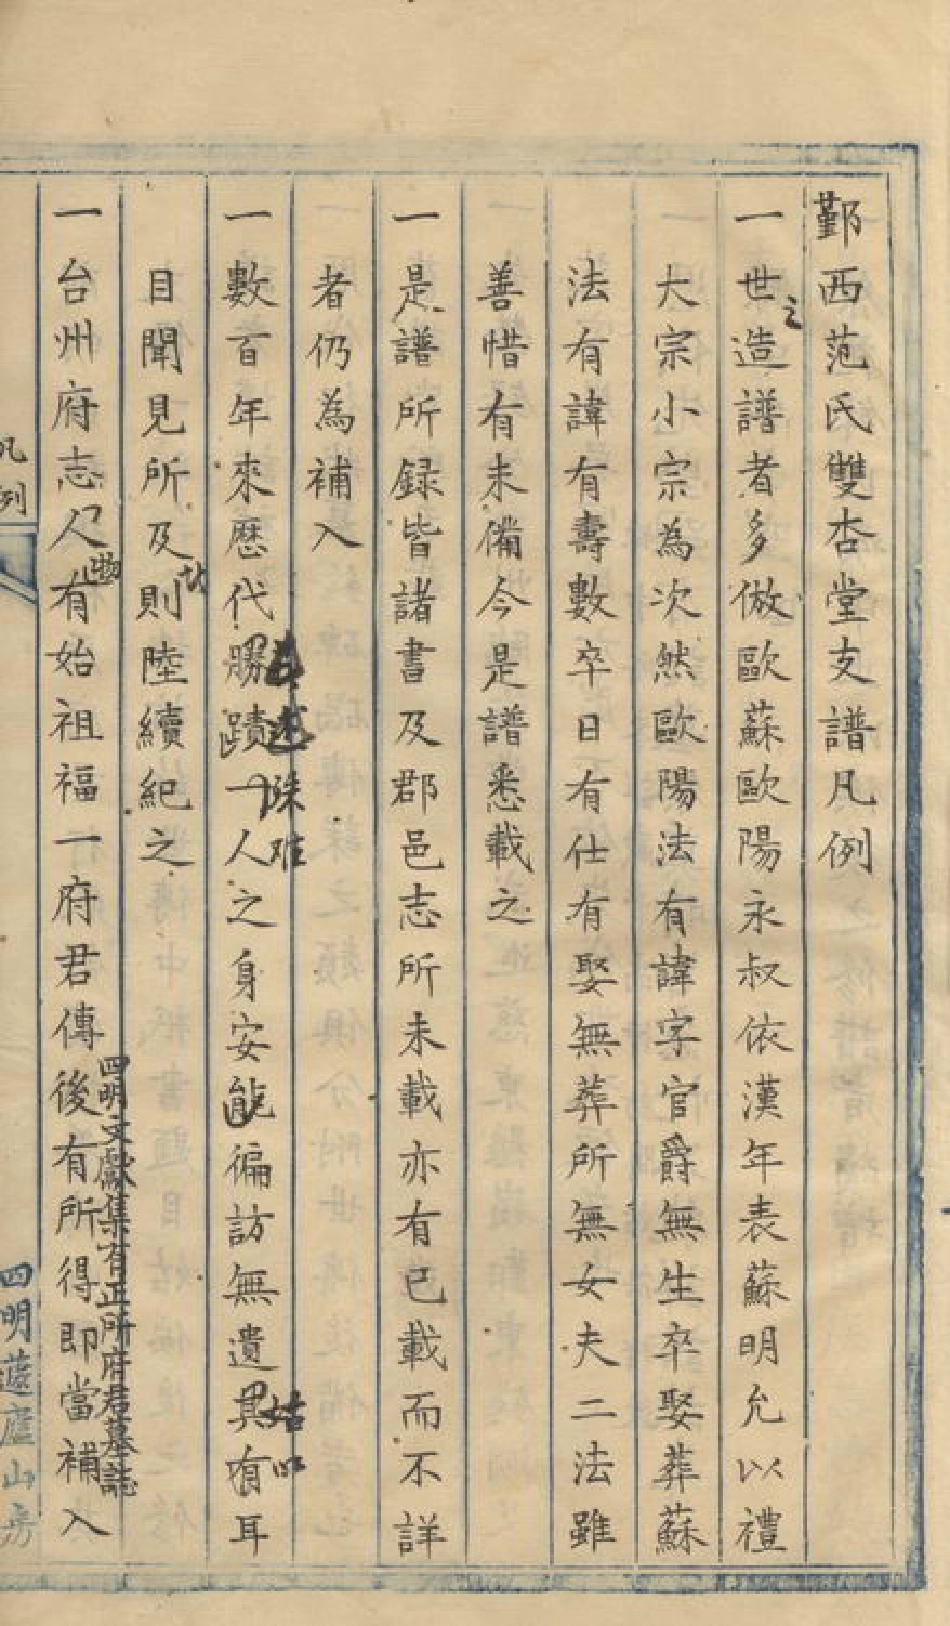 鄞西范氏雙杏堂支譜凡例
一世之造譜者多倣歐蘇歐陽永叔依漢年表蘇明允以禮
大宗小宗為次然歐陽法有諱字官爵無生卒娶葬蘇
法有諱有壽數卒日有仕有娶無葬所無女夫二法雖
善惜有未備今是譜悉載之
一是譜所録皆諸書及郡邑志所未載亦有已載而不詳
者仍為補入
一數百年來歷代勝蹟一人之身安能徧訪無遺具有耳
殊难
姑以
目聞見所及則陸續紀之
一台州府志人有始祖福一府君傳後有所得即當補入
四明文獻集有正所府君墓誌
凡例
四明蘧廬山房